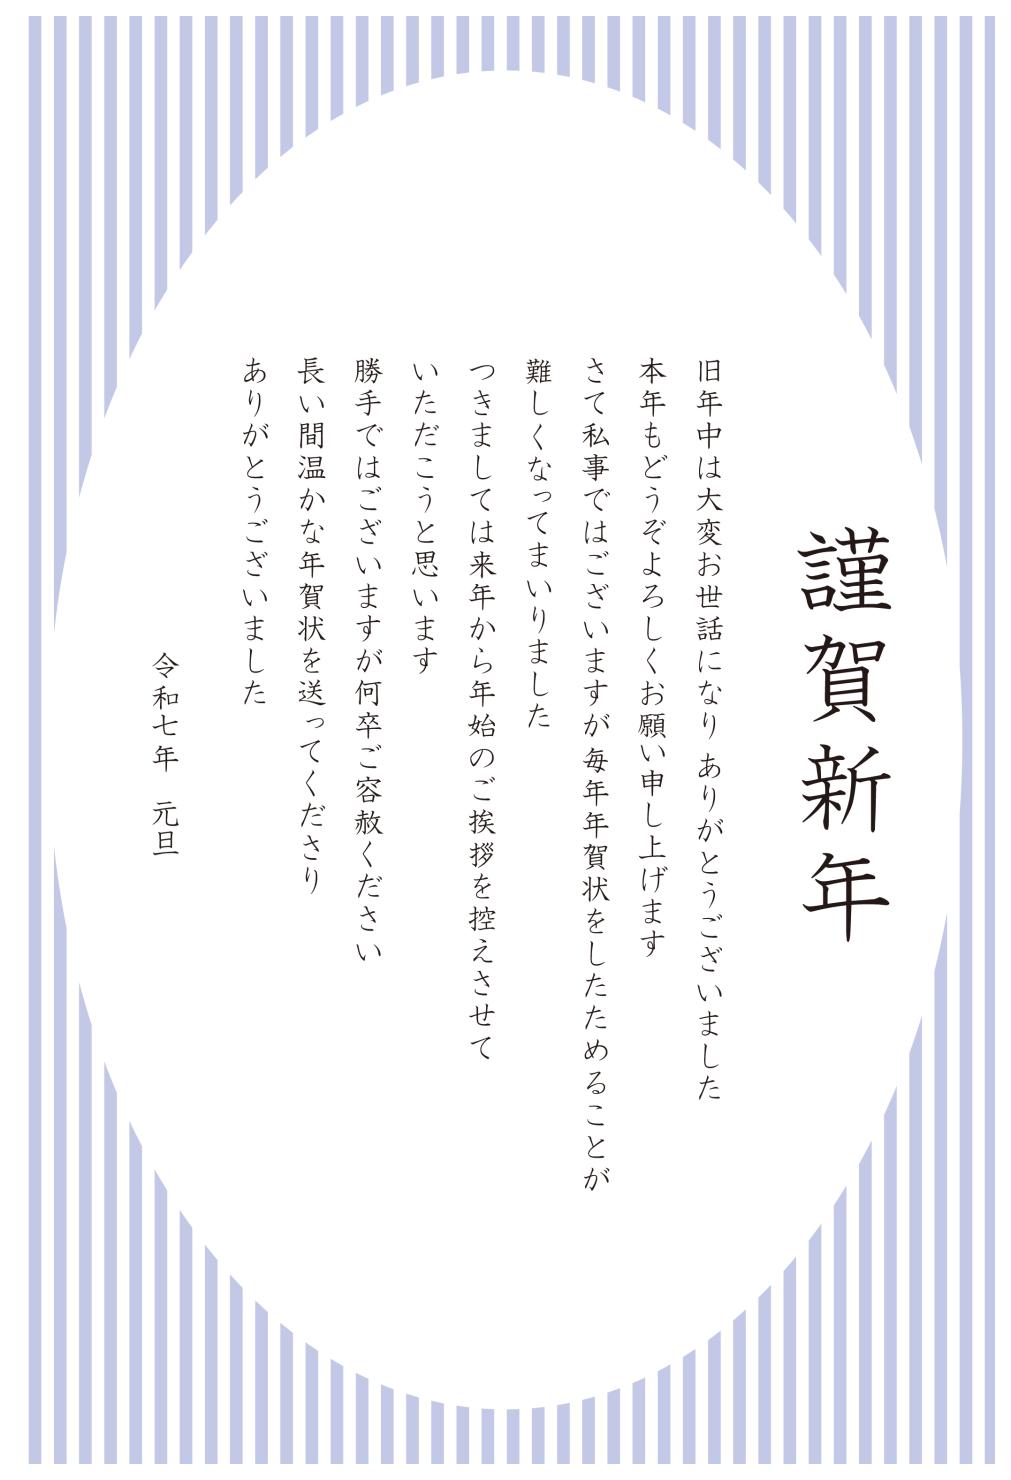 謹賀新年
旧年中は大変お世話になり ありがとうございました
本年もどうぞよろしくお願い申し上げます
さて私事ではございますが 毎年年賀状をしたためることが
難しくなってまいりました
つきましては来年から年始のご挨拶を控えさせて
いただこうと思います
勝手ではございますが何卒ご容赦ください
長い間温かな年賀状を送ってくださり
ありがとうございました
令和七年　元旦